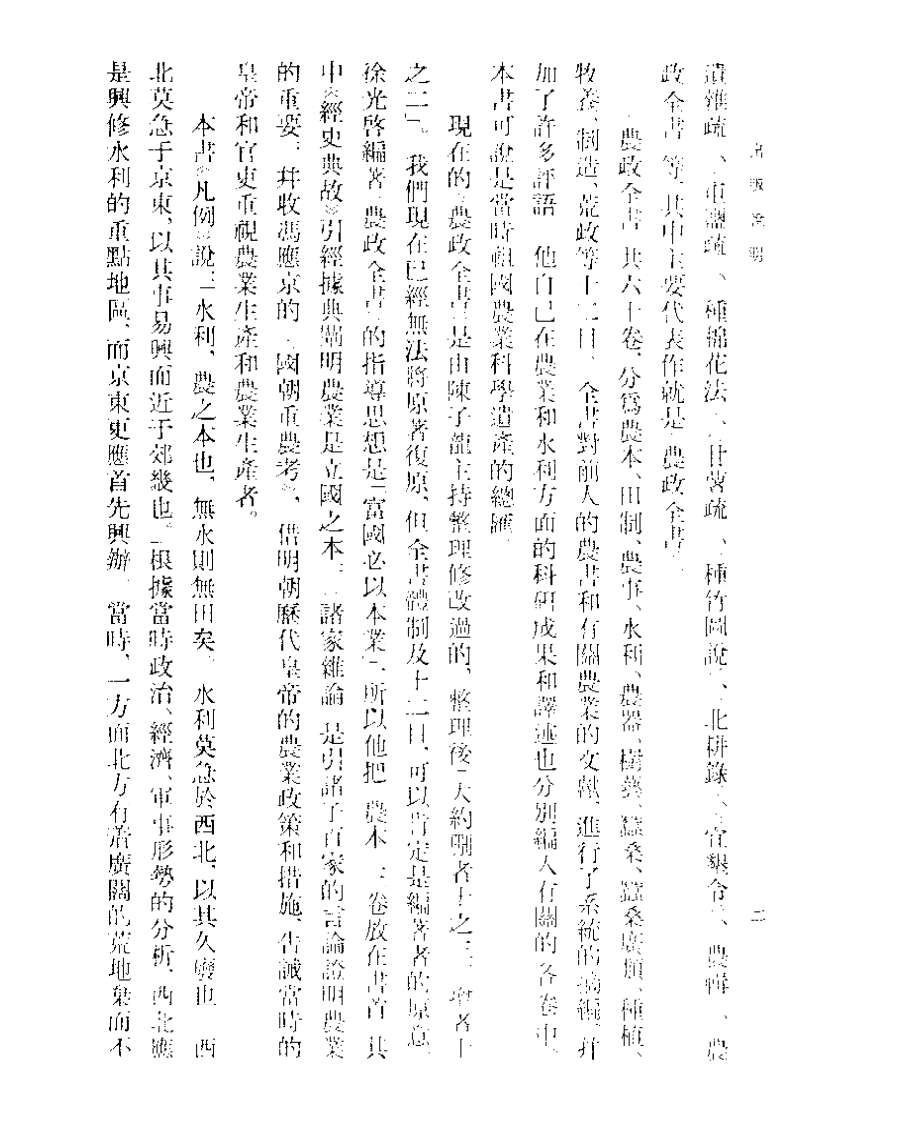 出版說明
二
遺雜疏》、《屯鹽疏》、《種棉花法》、《甘藷疏》、《種竹圖說》、《北耕錄》、《宜墾令》、《農輯》、《農
政全書》等，其中主要代表作就是《農政全書》。
《農政全書》共六十卷，分爲農本、田制、農事、水利、農器、樹藝、蠶桑、蠶桑廣類、種植、
牧養、制造、荒政等十二目。全書對前人的農書和有關農業的文獻，進行了系統的摘編，幷
加了許多評語。他自己在農業和水利方面的科研成果和譯述也分別編入有關的各卷中。
本書可說是當時祖國農業科學遺產的總匯。
現在的《農政全書》是由陳子龍主持整理修改過的，整理後「大約刪者十之三，增者十
之二」。我們現在已經無法將原著復原，但全書體制及十二目，可以肯定是編著者的原意。
徐光啓編著《農政全書》的指導思想是「富國必以本業」，所以他把《農本》三卷放在書首。其
中《經史典故》引經據典闡明農業是立國之本；《諸家雜論》是引諸子百家的言論證明農業
的重要；幷收馮應京的《國朝重農考》，借明朝歷代皇帝的農業政策和措施，告誡當時的
皇帝和官吏重視農業生產和農業生產者。
本書《凡例》說：「水利，農之本也，無水則無田矣。水利莫急於西北，以其久廢也；西
北莫急于京東，以其事易興而近于郊畿也。」根據當時政治、經濟、軍事形勢的分析，西北應
是興修水利的重點地區，而京東更應首先興辦。當時，一方面北方有着廣闊的荒地棄而不